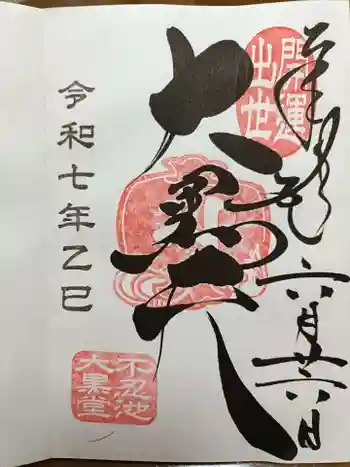 奉拝 六月廿六日
開運
出世
大黒天
令和七年乙巳
不忍池
大黒堂